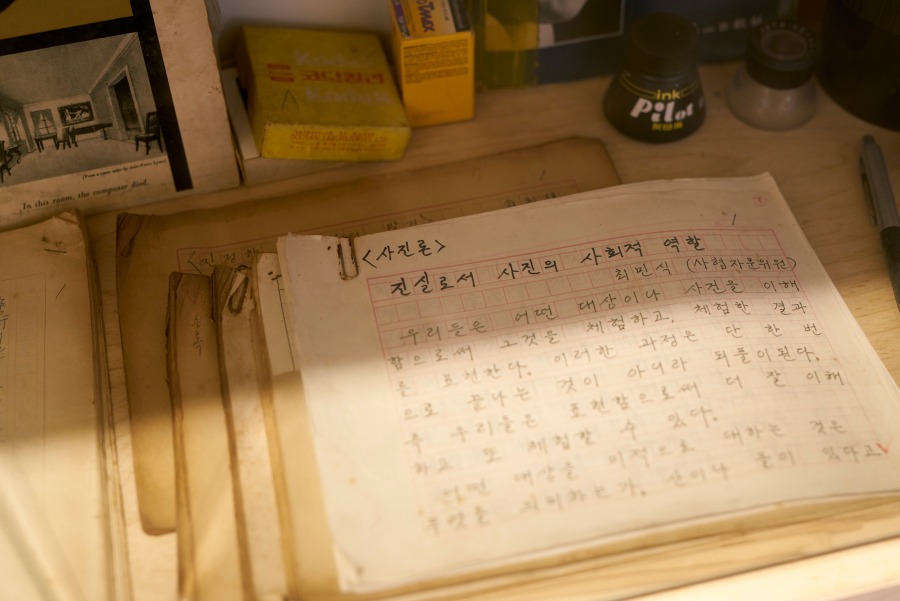 (From a color slide by Jean-Pierre Leloir)
In this room, the composer died.
Kodak
코니칼라
Kodak
ink
Pilot
<사진론>
진실로서 사진의 사회적 역할
최민식 (사협자문위원)
우리들은 어떤 대상이나 사건을 이해
함으로써 그것을 체험하고, 체험한 결과
를 표현한다. 이러한 과정은 단 한 번
으로 끝나는 것이 아니라 되풀이된다.
즉 우리들은 표현함으로써 더 잘 이해
하고 또 체험할 수 있다.
어떤 대상을 미적으로 대하는 것은
무엇을 의미하는가. 산이나 물이 있다고